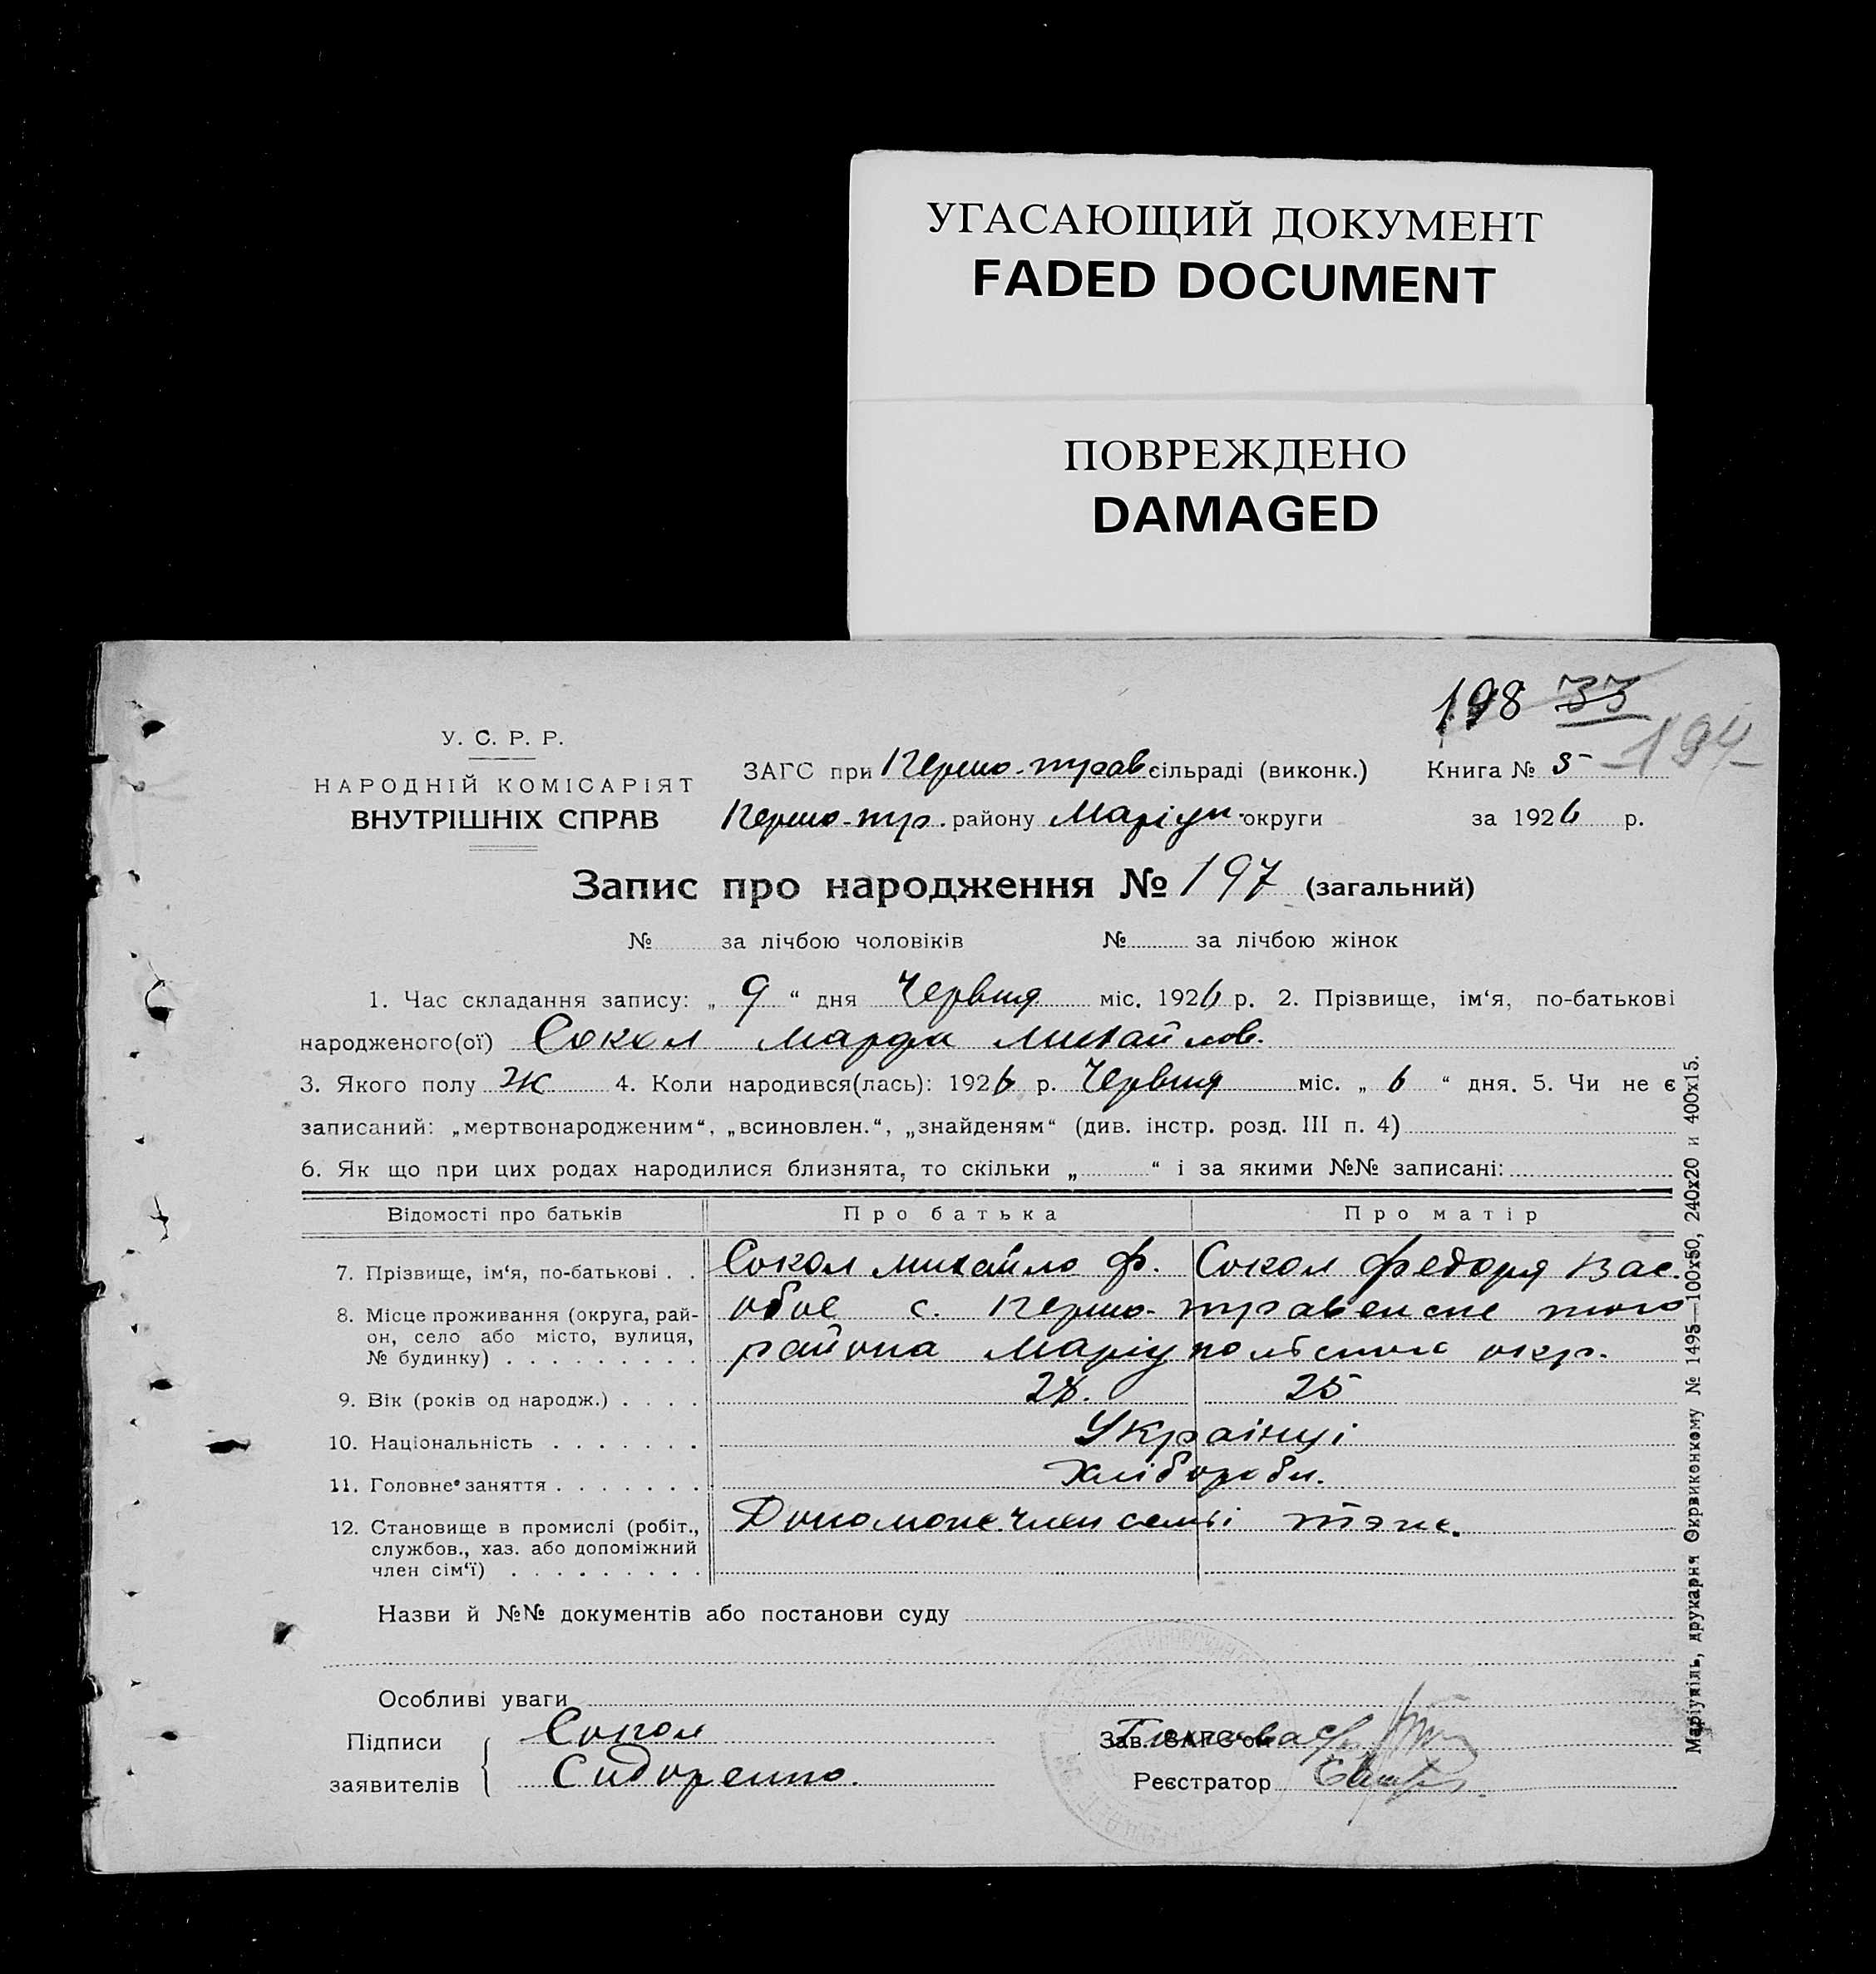 УГАСАЮЩИЙ ДОКУМЕНТ
FADED DOCUMENT
ПОВРЕЖДЕНО
DAMAGED
198 33
194
У. С. Р. Р.
НАРОДНІЙ КОМІСАРІЯТ
ВНУТРІШНІХ СПРАВ
ЗАГС при Першо-трав сільраді (виконк.)
Книга № 5
Першо-тр. району Маріуп. округи
за 1926 р.
Запис про народження № 197 (загальний)
№ за лічбою чоловіків № за лічбою жінок
1. Час складання запису: „ 9 “ дня Червня міс. 1926 р. 2. Прізвище, ім‘я, по-батькові
народженого(ої) Сокол Марфа Михайлов.
3. Якого полу Ж 4. Коли народився(лась): 1926 р. Червня міс. „ 6 “ дня. 5. Чи не є
записаний: „мертвонародженим“, „всиновлен.“, „знайденям“ (див. інстр. розд. III п. 4)
6. Як що при цих родах народилися близнята, то скільки „ “ і за якими №№ записані:
Відомості про батьків Про батька Про матір
7. Прізвище, ім‘я, по-батькові . . Сокол Михайло Ф. Сокол Федоря Вас.
8. Місце проживання (округа, рай-
он, село або місто, вулиця,
№ будинку) . . . . . . . . .
обоє с. Першо-травенске того
района Маріупольского окр.
9. Вік (років од народж.) . . . . 28. 25
10. Національність . . . . . . . Українці
11. Головне заняття . . . . . . . Хлібороби.
12. Становище в промислі (робіт.,
службов., хаз. або допоміжний
член сім‘ї) . . . . . . . . .
член семьі
Назви й №№ документів або постанови суду
Особливі уваги
Підписи
заявителів
Сокол
Сидоренко.
Зав. ЗАГС‘ом
Реєстратор
Маріупіль, друкарня Окрвиконкому № 1495—100х50, 240х20 и 400х15.